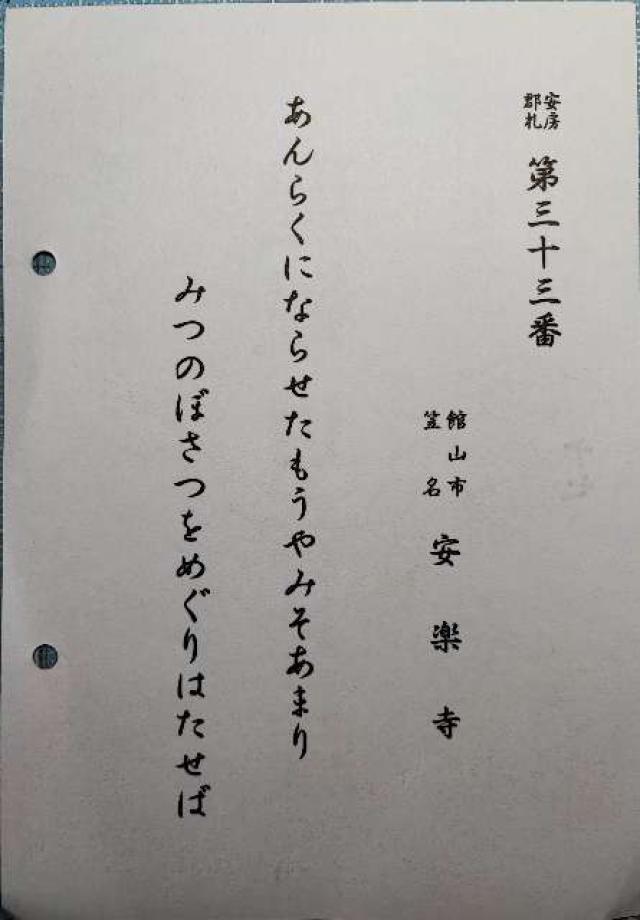 安房郡札 第三十三番
館山市笠名 安楽寺
あんらくにならせたもうやみそあまり
みつのぼさつをめぐりはたせば